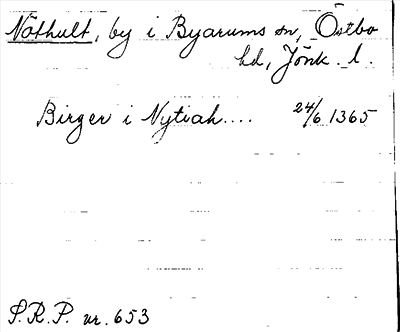 Nöthult, by i Byarums sn, Östbo
hd, Jönk. l.
Birger i Nytiah.... 24/6 1365
S.R.P. nr. 653